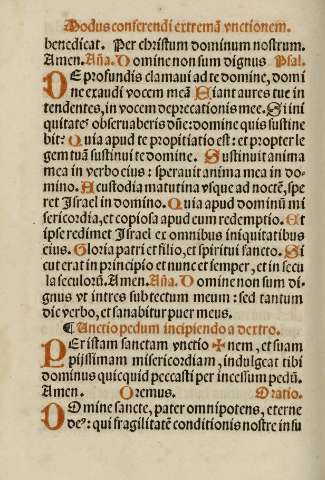 Modus conferendi extremã vnctionem.
benedicat. Per christum dominum nostrum.
Amen. Añа. Domine non sum dignus Psal.
DE profundis clamaui ad te domine, domi
ne exaudi vocem meã Fiant aures tue in
tendentes, in vocem deprecationis mee. Si ini
quitates obseruaberis dñe: domine quis sustine
bit: Quia apud te propitiatio est: et propter le
gem tuã sustinui te domine. Sustinuit anima
mea in verbo eius: sperauit anima mea in do-
mino. A custodia matutina vsque ad noctẽ, spe
ret Israel in domino. Quia apud dominũ mi
sericordia, et copiosa apud eum redemptio. Et
ipse redimet Israel ex omnibus iniquitatibus
eius. Gloria patri et filio, et spiritui sancto. Si
cut erat in principio et nunc et semper, et in secu
la seculorũ. Amen. Aña. Domine non sum di
gnus vt intres sub tectum meum: sed tantum
dic verbo, et sanabitur puer meus.
¶ Vnctio pedum incipiendo a dextro.
PEr istam sanctam vnctio ✠ nem, et suam
pijssimam misericordiam, indulgeat tibi
dominus quicquid peccasti per incessum pedũ.
Amen. Oremus. Oratio.
DOmine sancte, pater omnipotens, eterne
de⁹: qui fragilitatẽ conditionis nostre infu